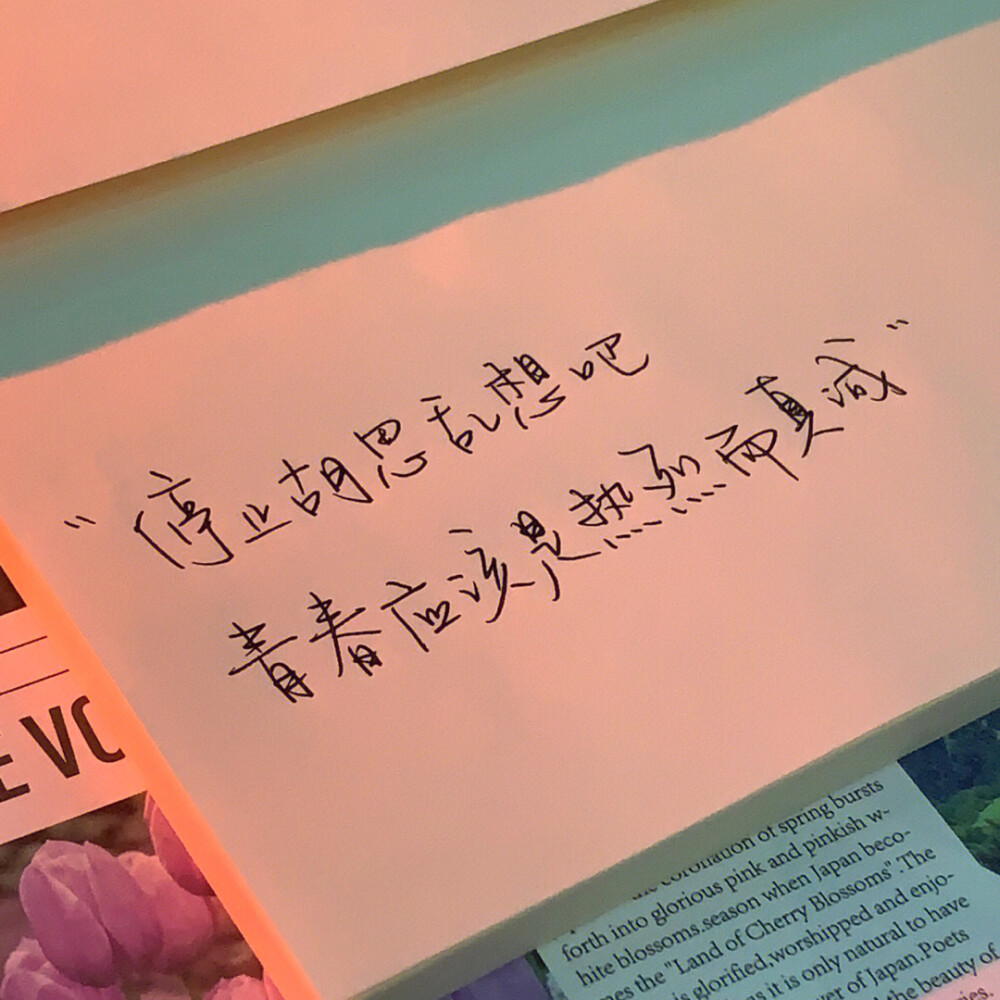 “停止胡思乱想吧
青春应该是热烈而真诚”
E VO
forth into glorious pink and pinkish w-
hite blossoms.season when Japan beco-
mes the "Land of Cherry Blossoms".The
is glorified,worshipped and enjo-
it is only natural to have
of Japan.Poets
the beauty of